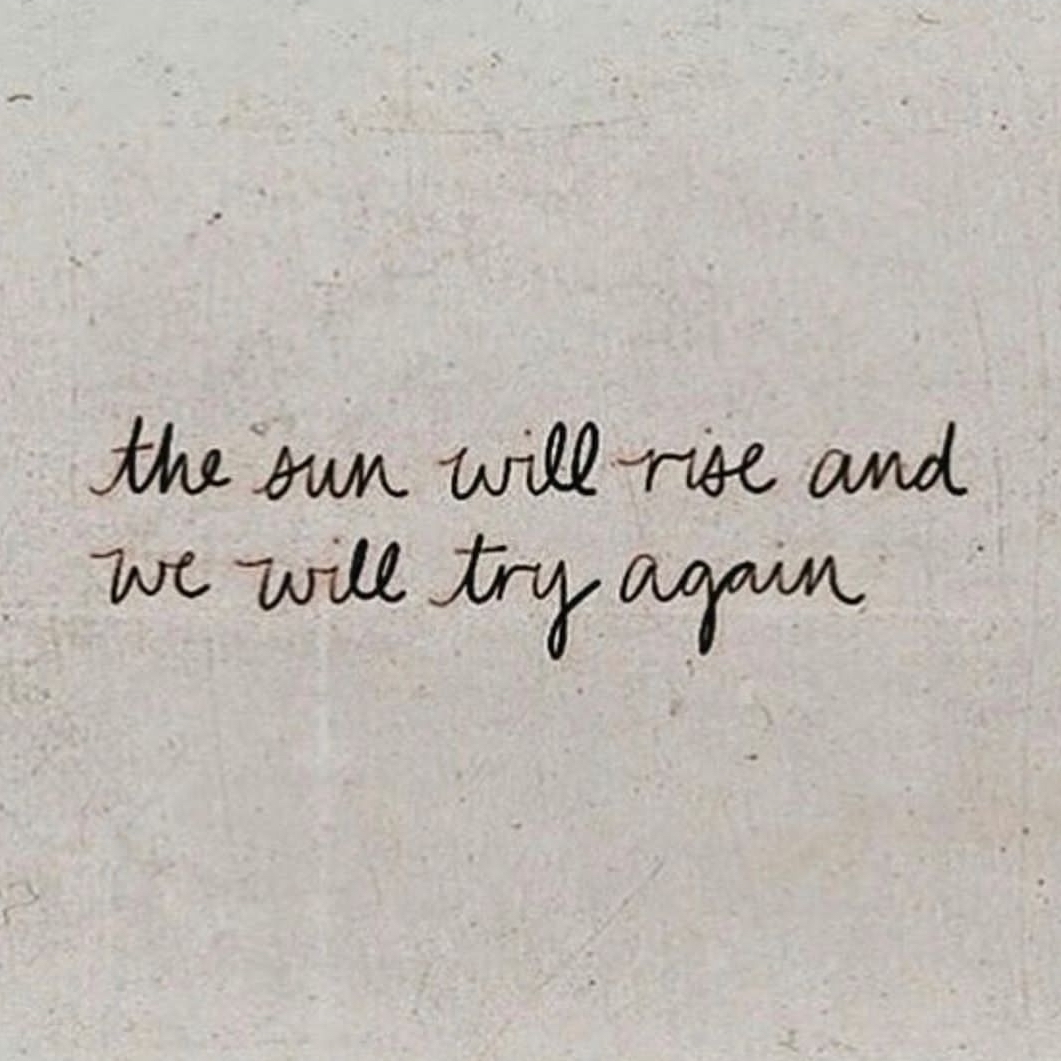 the sun will rise and
we will try again